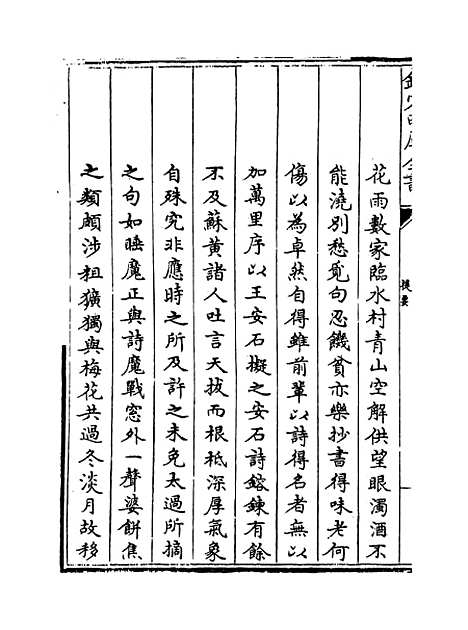 欽定四庫全書
提要
花雨數家臨水村青山空解供望眼濁酒不
能澆別愁覓句忍饑貧亦樂抄書得味老何
傷以為卓然自得雖前輩以詩得名者無以
加萬里序以王安石擬之安石詩鎔鍊有餘
不及蘇黃諸人吐言天拔而根柢深厚氣象
自殊究非應時之所及許之未免太過所摘
之句如睡魔正與詩魔戰窓外一聲婆餅焦
之類頗涉粗獷獨與梅花共過冬淡月故移